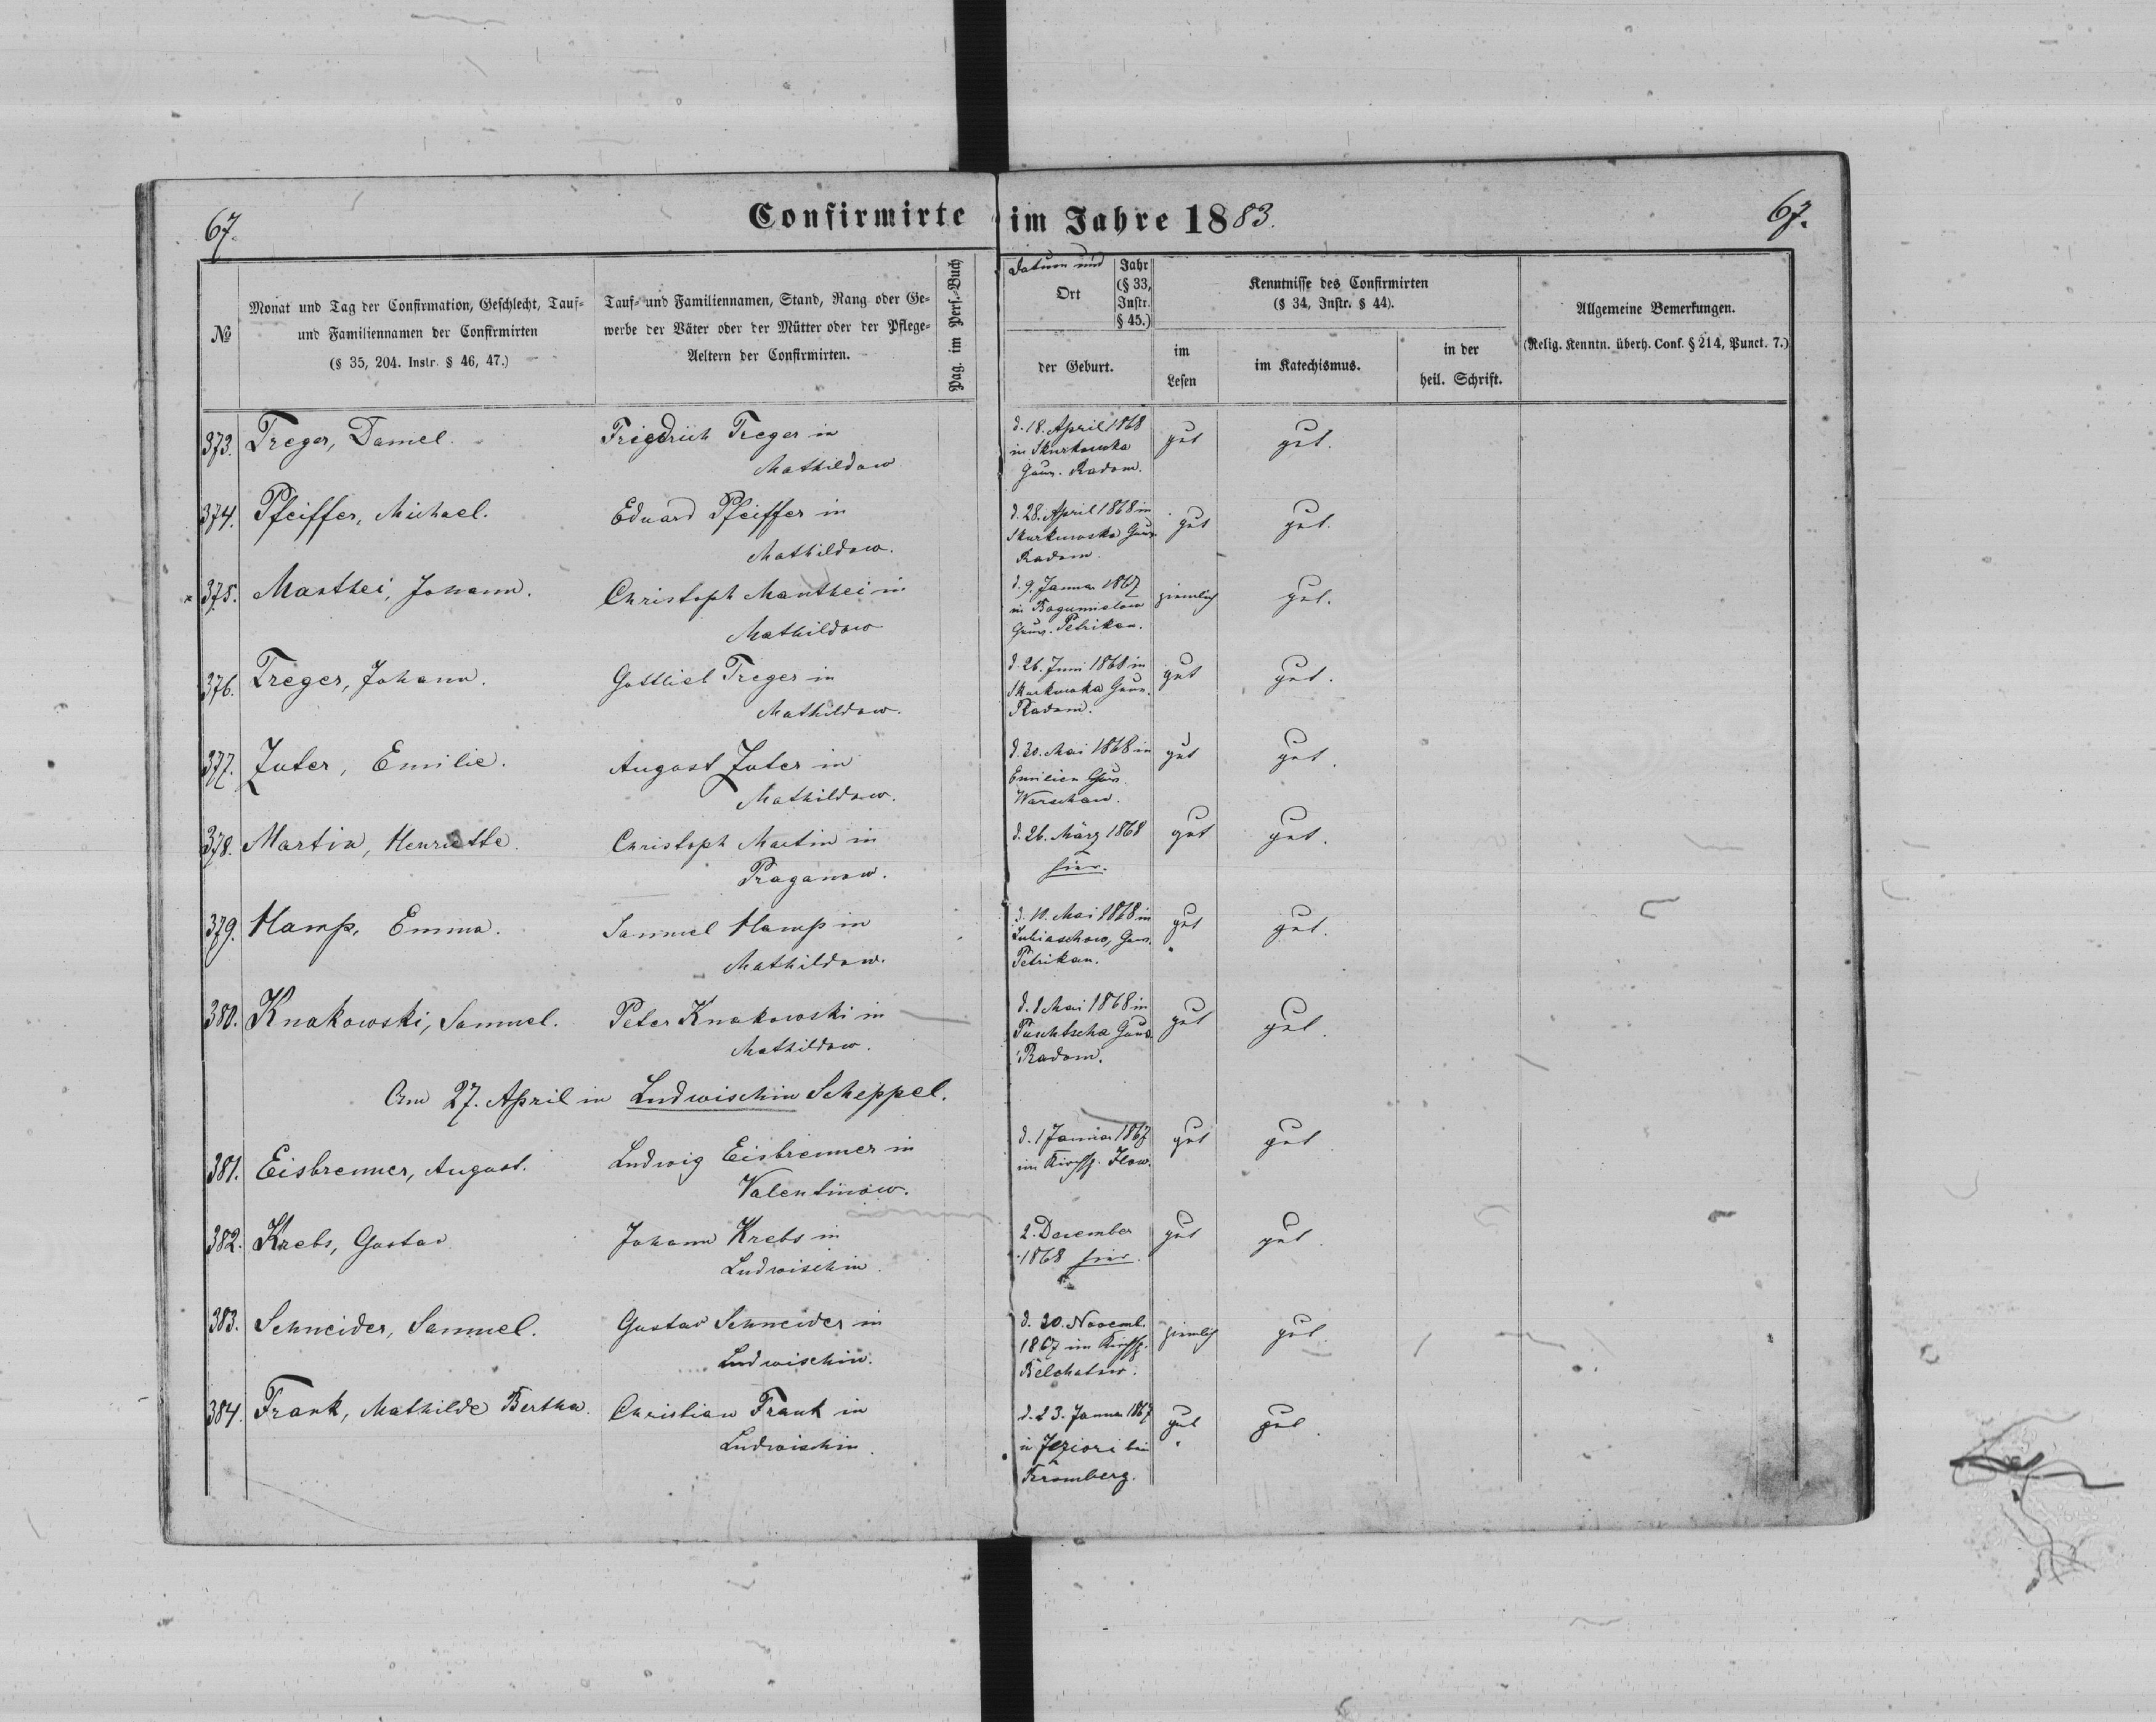 67.
Confirmirte im Jahre 1883.
67.
№
Monat und Tag der Confirmation, Geschlecht, Tauf-
und Familiennamen der Confirmirten
(§ 35, 204. Instr. § 46, 47.)
Tauf- und Familiennamen, Stand, Rang oder Ge-
werbe der Väter oder der Mütter oder der Pflege-
Aeltern der Confirmirten.
Pag. im Pers.-Buch
Datum und
Ort
Jahr
(§ 33,
Instr.
§ 45.)
der Geburt.
Kenntnisse des Confirmirten
(§ 34, Instr. § 44).
im
Lesen
im Katechismus.
in der
heil. Schrift.
Allgemeine Bemerkungen.
(Relig. Kenntn. überh. Conf. § 214, Punct. 7.)
373. Treger, Daniel.
Friedrich Treger in
Mathildow
d. 18. April 1868
in Skurkowka
Gouv. Radom.
gut
gut.
374. Pfeiffer, Michael.
Eduard Pfeiffer in
Mathildow.
d. 28. April 1868 in
Skurkowska Gouv.
Radom.
gut
gut.
× 375. Manthei, Johann.
Christoph Manthei in
Mathildow
d. 9. Januar 1867
in Bogumielow
Gouv. Petrikau.
ziemlich
gut.
376. Treger, Johann.
Gottlieb Treger in
Mathildow.
d. 26. Juni 1868 in
Skurkowka Gouv.
Radom.
gut
gut.
377. Zuter, Emilie.
August Zuter in
Mathildow.
d. 20. Mai 1868 in
Emilien Gouv.
Warschau.
gut
gut.
378. Martin, Henriette.
Christoph Martin in
Praganow.
d. 26. März 1868
hier.
gut
gut.
379. Hamp, Emma.
Samuel Hamp in
Mathildow.
d. 10. Mai 1868 in
Lubiaschow, Gouv.
Petrikau.
gut
gut.
380. Knakowski, Samuel.
Peter Knakowski in
Mathildow.
d. 8 Mai 1868 in
Puschtscha Gouv.
Radom.
gut
gut.
Am 27. April in Ludwischin Scheppel.
381. Eisbrenner, August.
Ludwig Eisbrenner in
Valentinow.
d. 1 Januar 1867
im Kirchsp. Ilow.
gut
gut
382. Krebs, Gustav
Johann Krebs in
Ludwischin.
2. December
1868 hier.
gut
gut.
383. Schneider, Samuel.
Gustav Schneider in
Ludwischin.
d. 20. Novemb.
1867 im Kirchsp.
Belchatow.
ziemlich
gut.
384. Frank, Mathilde Bertha.
Christian Frank in
Ludwischin.
d. 23. Januar 1867
in Jeziori bei
Bromberg.
gut
gut.